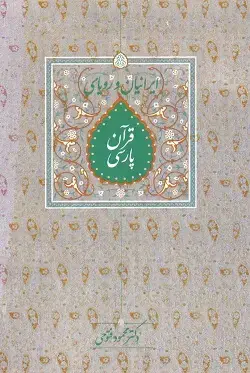 ایرانیان و رویای
قرآن
پارسی
دکتر محمود فتوحی